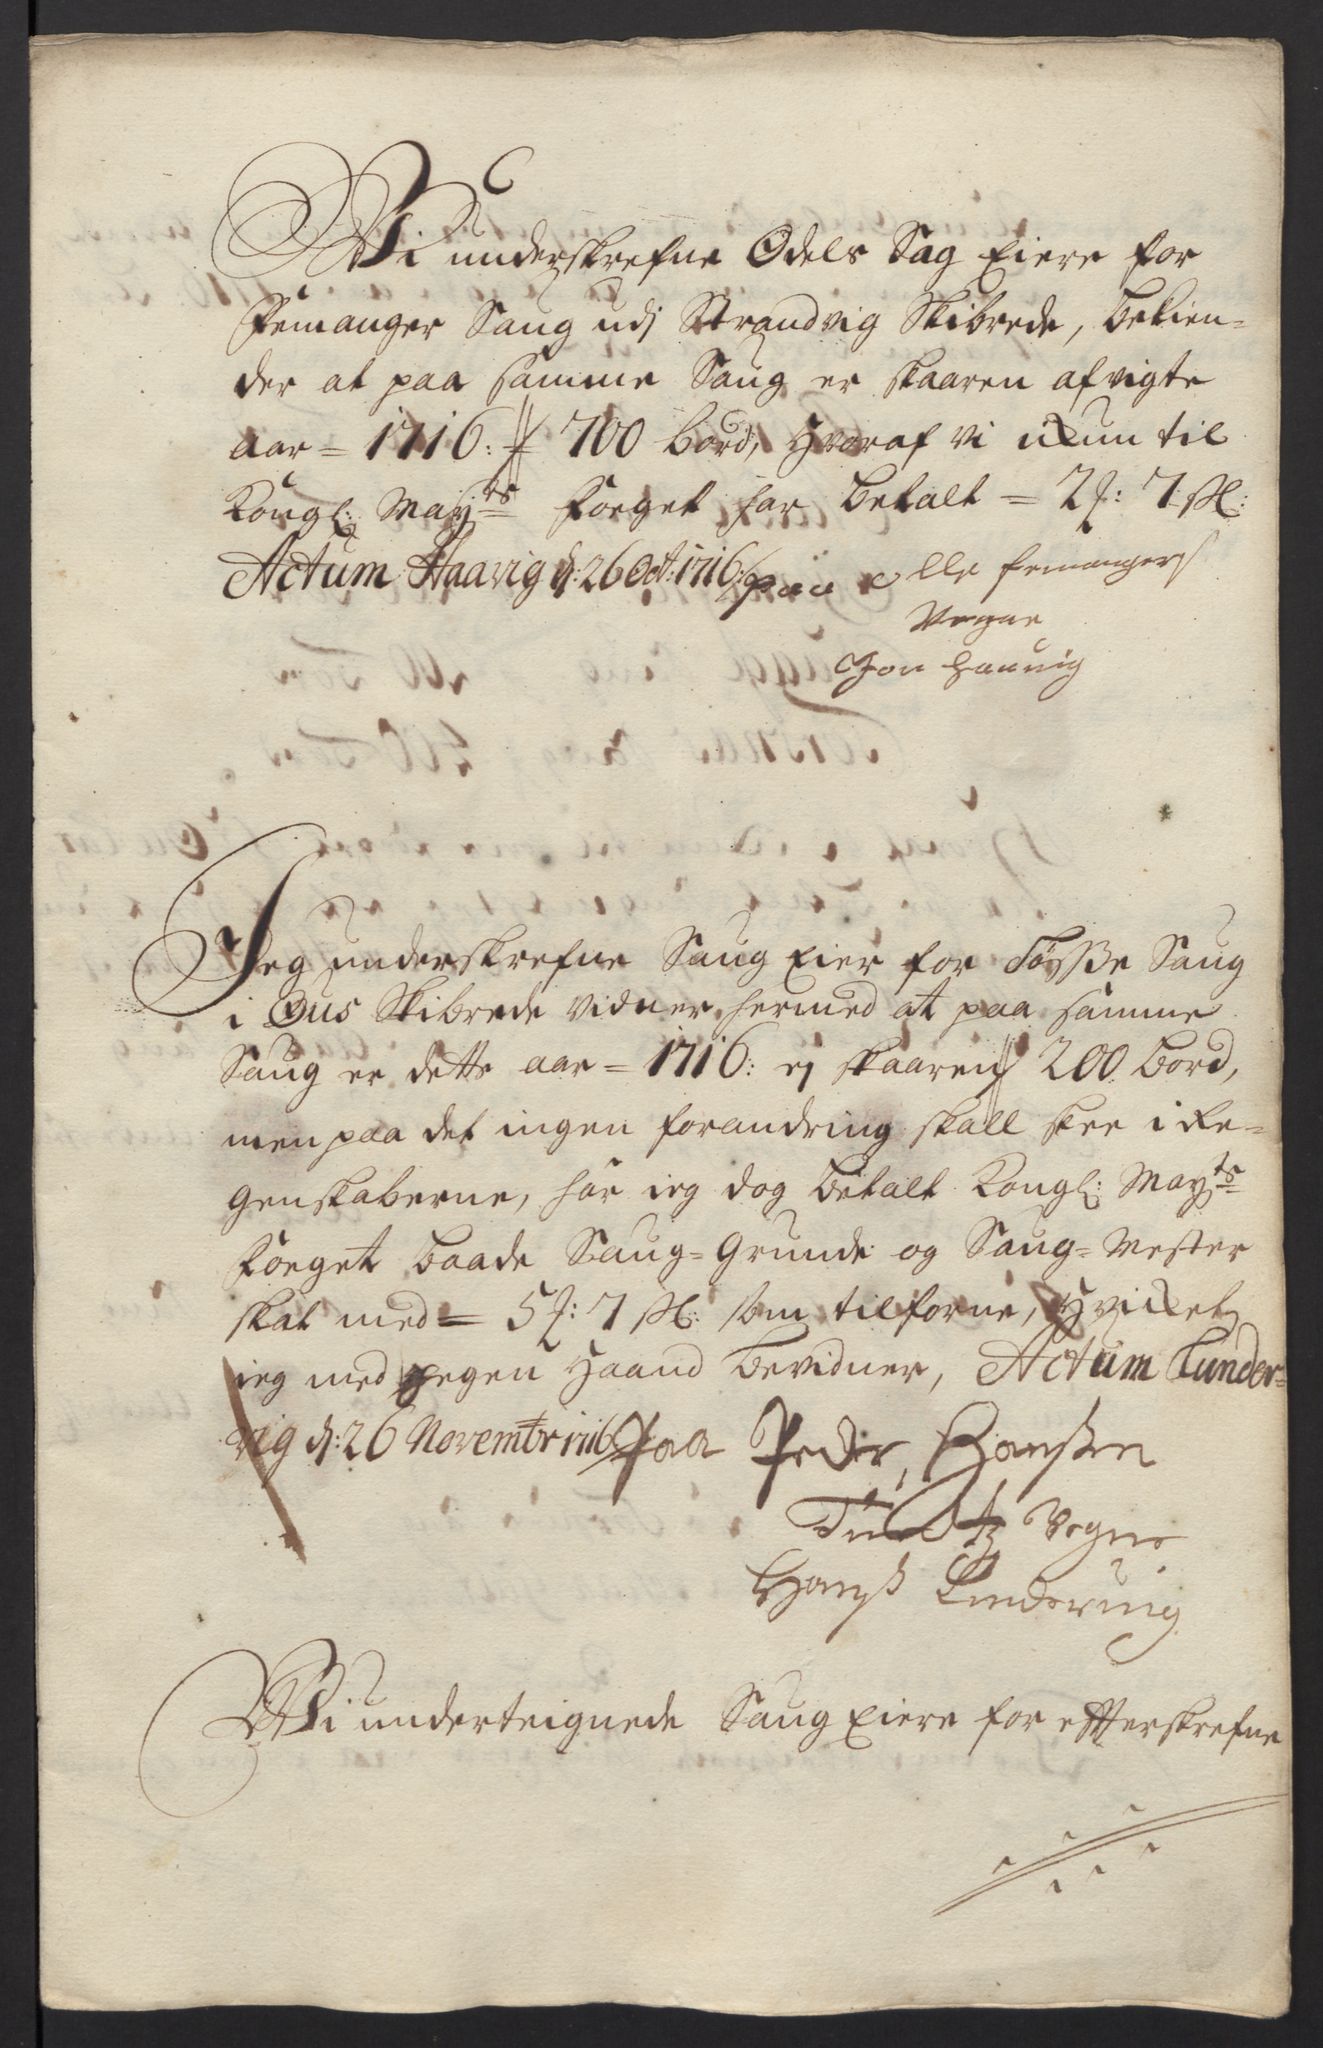 Wi underskrefne Odels Sag Eiere for
Femanger Saug udj Strandvig Skibrede, bekien-
der at paa samme Saug er skaaren afvigte
aar = 1716: 700 bord, hvoraf vi ickun til
Kongl: Mayts Foeget har betalt = 2 : 7
Actum Haavig d: 26 Oct: 1716: paa alle femangers
Vegne
Jon haauig
Jeg underskrefne Saug Eier for Tøsße Saug
i Ous Skibrede vidner hermed at paa samme
Saug er dette aar = 1716: ej skaaren 200 bord,
men paa det ingen forandring skall skee i Re-
genskaberne, har ieg dog betalt Kongl: Mayts
Foeget baade Saug-Grunde og Saug-Mester
skat med = 5 : 7 som tilforne, hvilcket
ieg med egen Haand bevidner, Actum Lunder-
vig d: 26 Novembr 1716 Paa Peder Hanßen
Vegne
Hanß Lunderuig
Wi underteignede Saug Eiere for effterskrefne